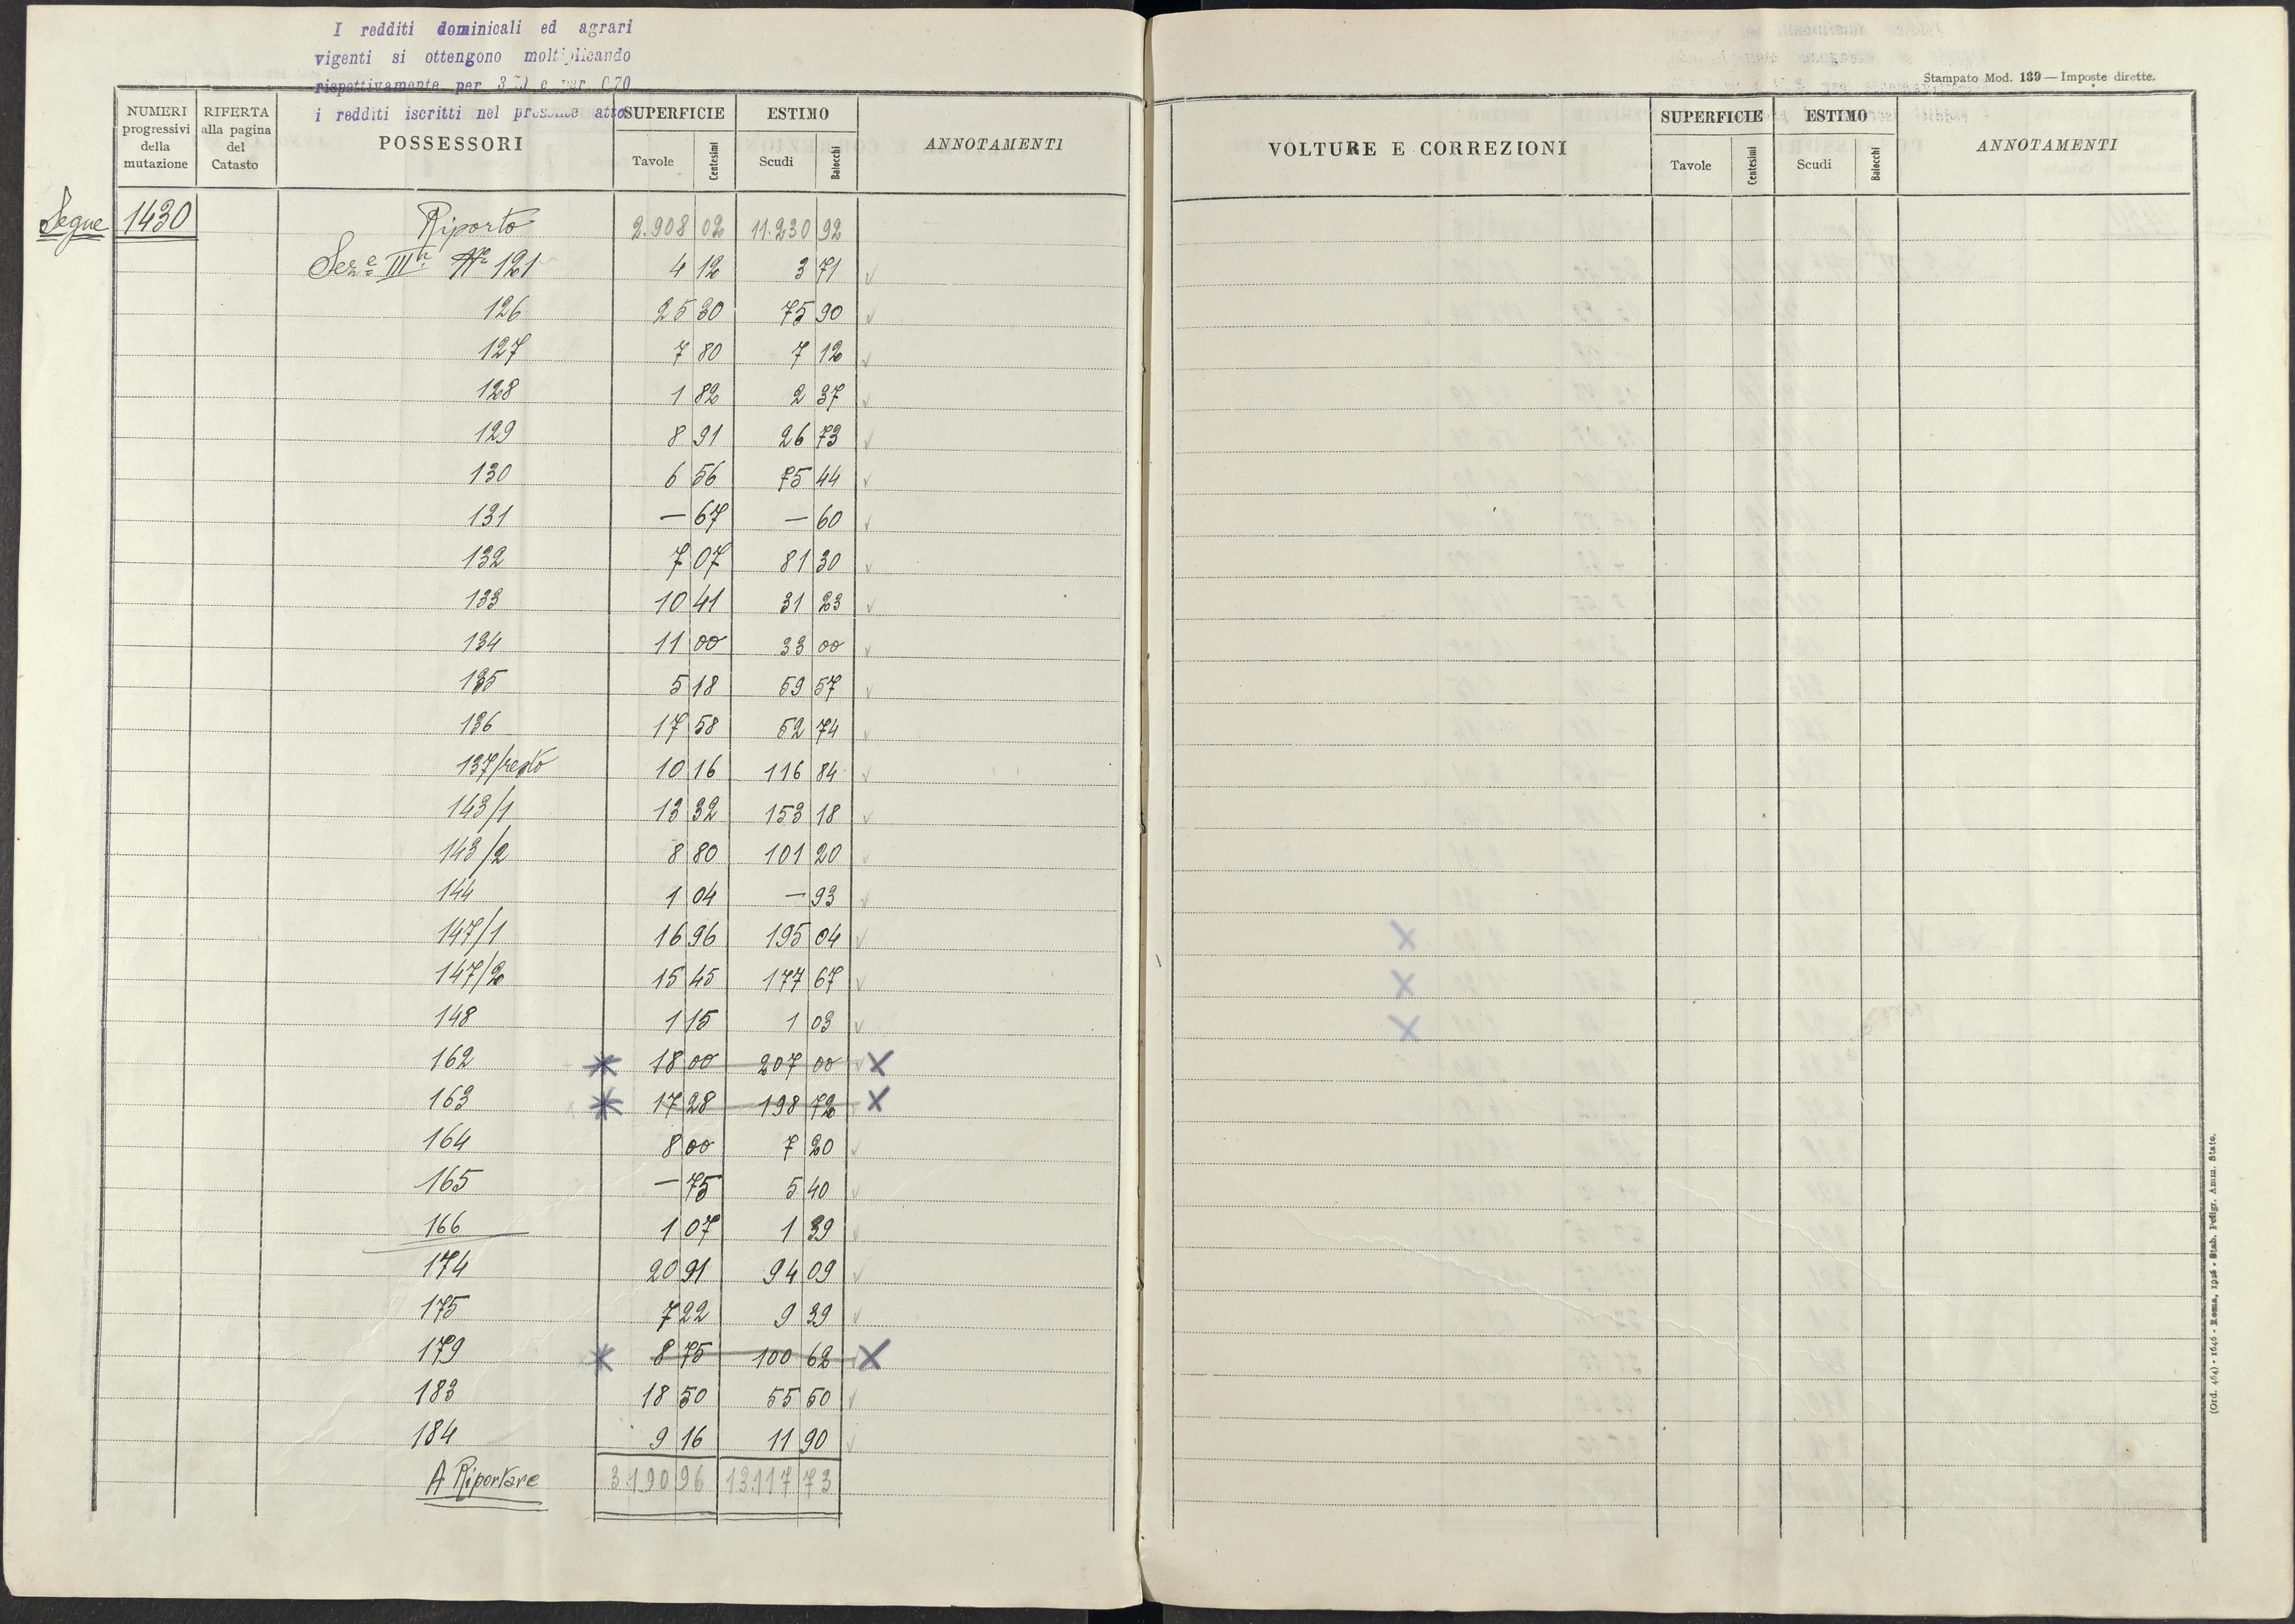 I redditi dominicali ed agrari
vigenti si ottengono moltiplicando
rispettivamente per e per 0,70
i redditi iscritti nel presente atto
Stampato Mod. 139 — Imposte dirette.
NUMERI progressivi della mutazione RIFERTA alla pagina del Catasto POSSESSORI SUPERFICIE Tavole Centesimi ESTIMO Scudi Baiocchi ANNOTAMENTI
VOLTURE E CORREZIONI SUPERFICIE Tavole Centesimi ESTIMO Scudi Baiocchi ANNOTAMENTI
Segue 1430 Riporto 2.908 02 11.230 92
Sez.e IIIa No 121 4 12 3 71
126 25 30 75 90
127 7 80 7 12
128 1 82 2 37
129 8 91 26 73
130 6 56 75 44
131 — 67 — 60
132 7 07 81 30
133 10 41 31 23
134 11 00 33 00
135 5 18 59 57
136 17 58 52 74
137/resto 10 16 116 84
143/1 13 32 153 18
143/2 8 80 101 20
144 1 04 — 93
147/1 16 96 195 04
147/2 15 45 177 67
148 1 15 1 03
162 18 00 207 00 X
163 17 28 198 72 X
164 8 00 7 20
165 — 75 5 40
166 1 07 1 39
174 20 91 94 09
175 7 22 9 39
179 8 75 100 62 X
183 18 50 55 50
184 9 16 11 90
A Riportare 3.190 96 13.117 73
(Ord. 464) - 1646 - Roma, 1926 - Stab. Poligr. Amm. Stato.